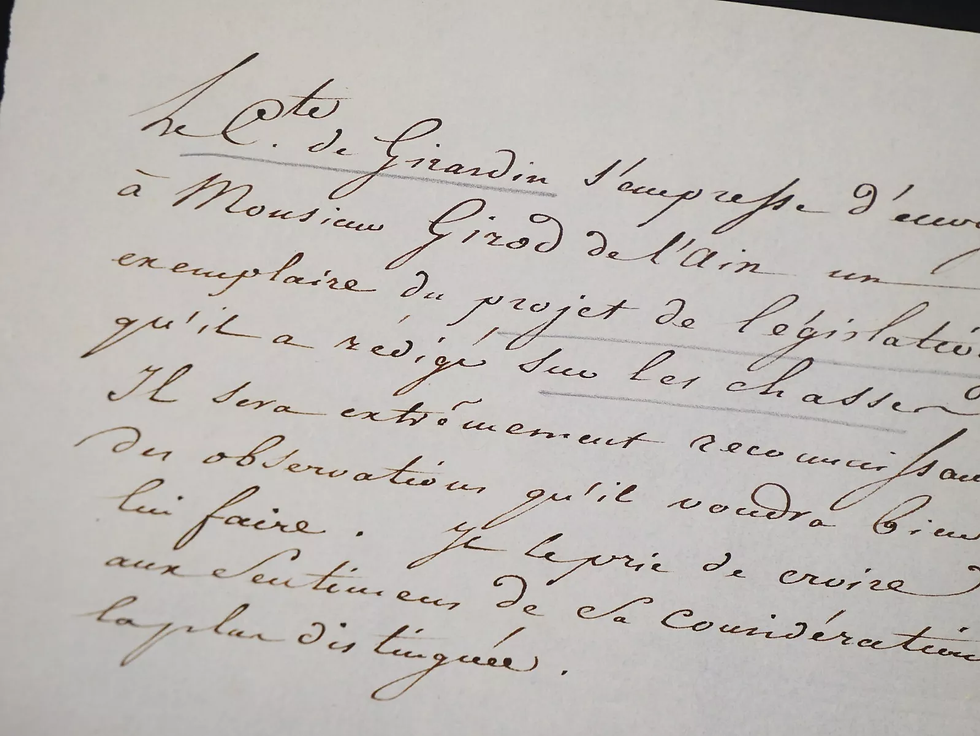 Le C.te de Girardin s'empresse d'envo
à Monsieur Girod de l'Ain un
exemplaire du projet de législatio
qu'il a rédigé sur les chasses
Il sera extrêmement reconnaissan
des observations qu'il voudra bien
lui faire. Il le prie de croire
aux Sentimens de Sa Considération
la plus distinguée.